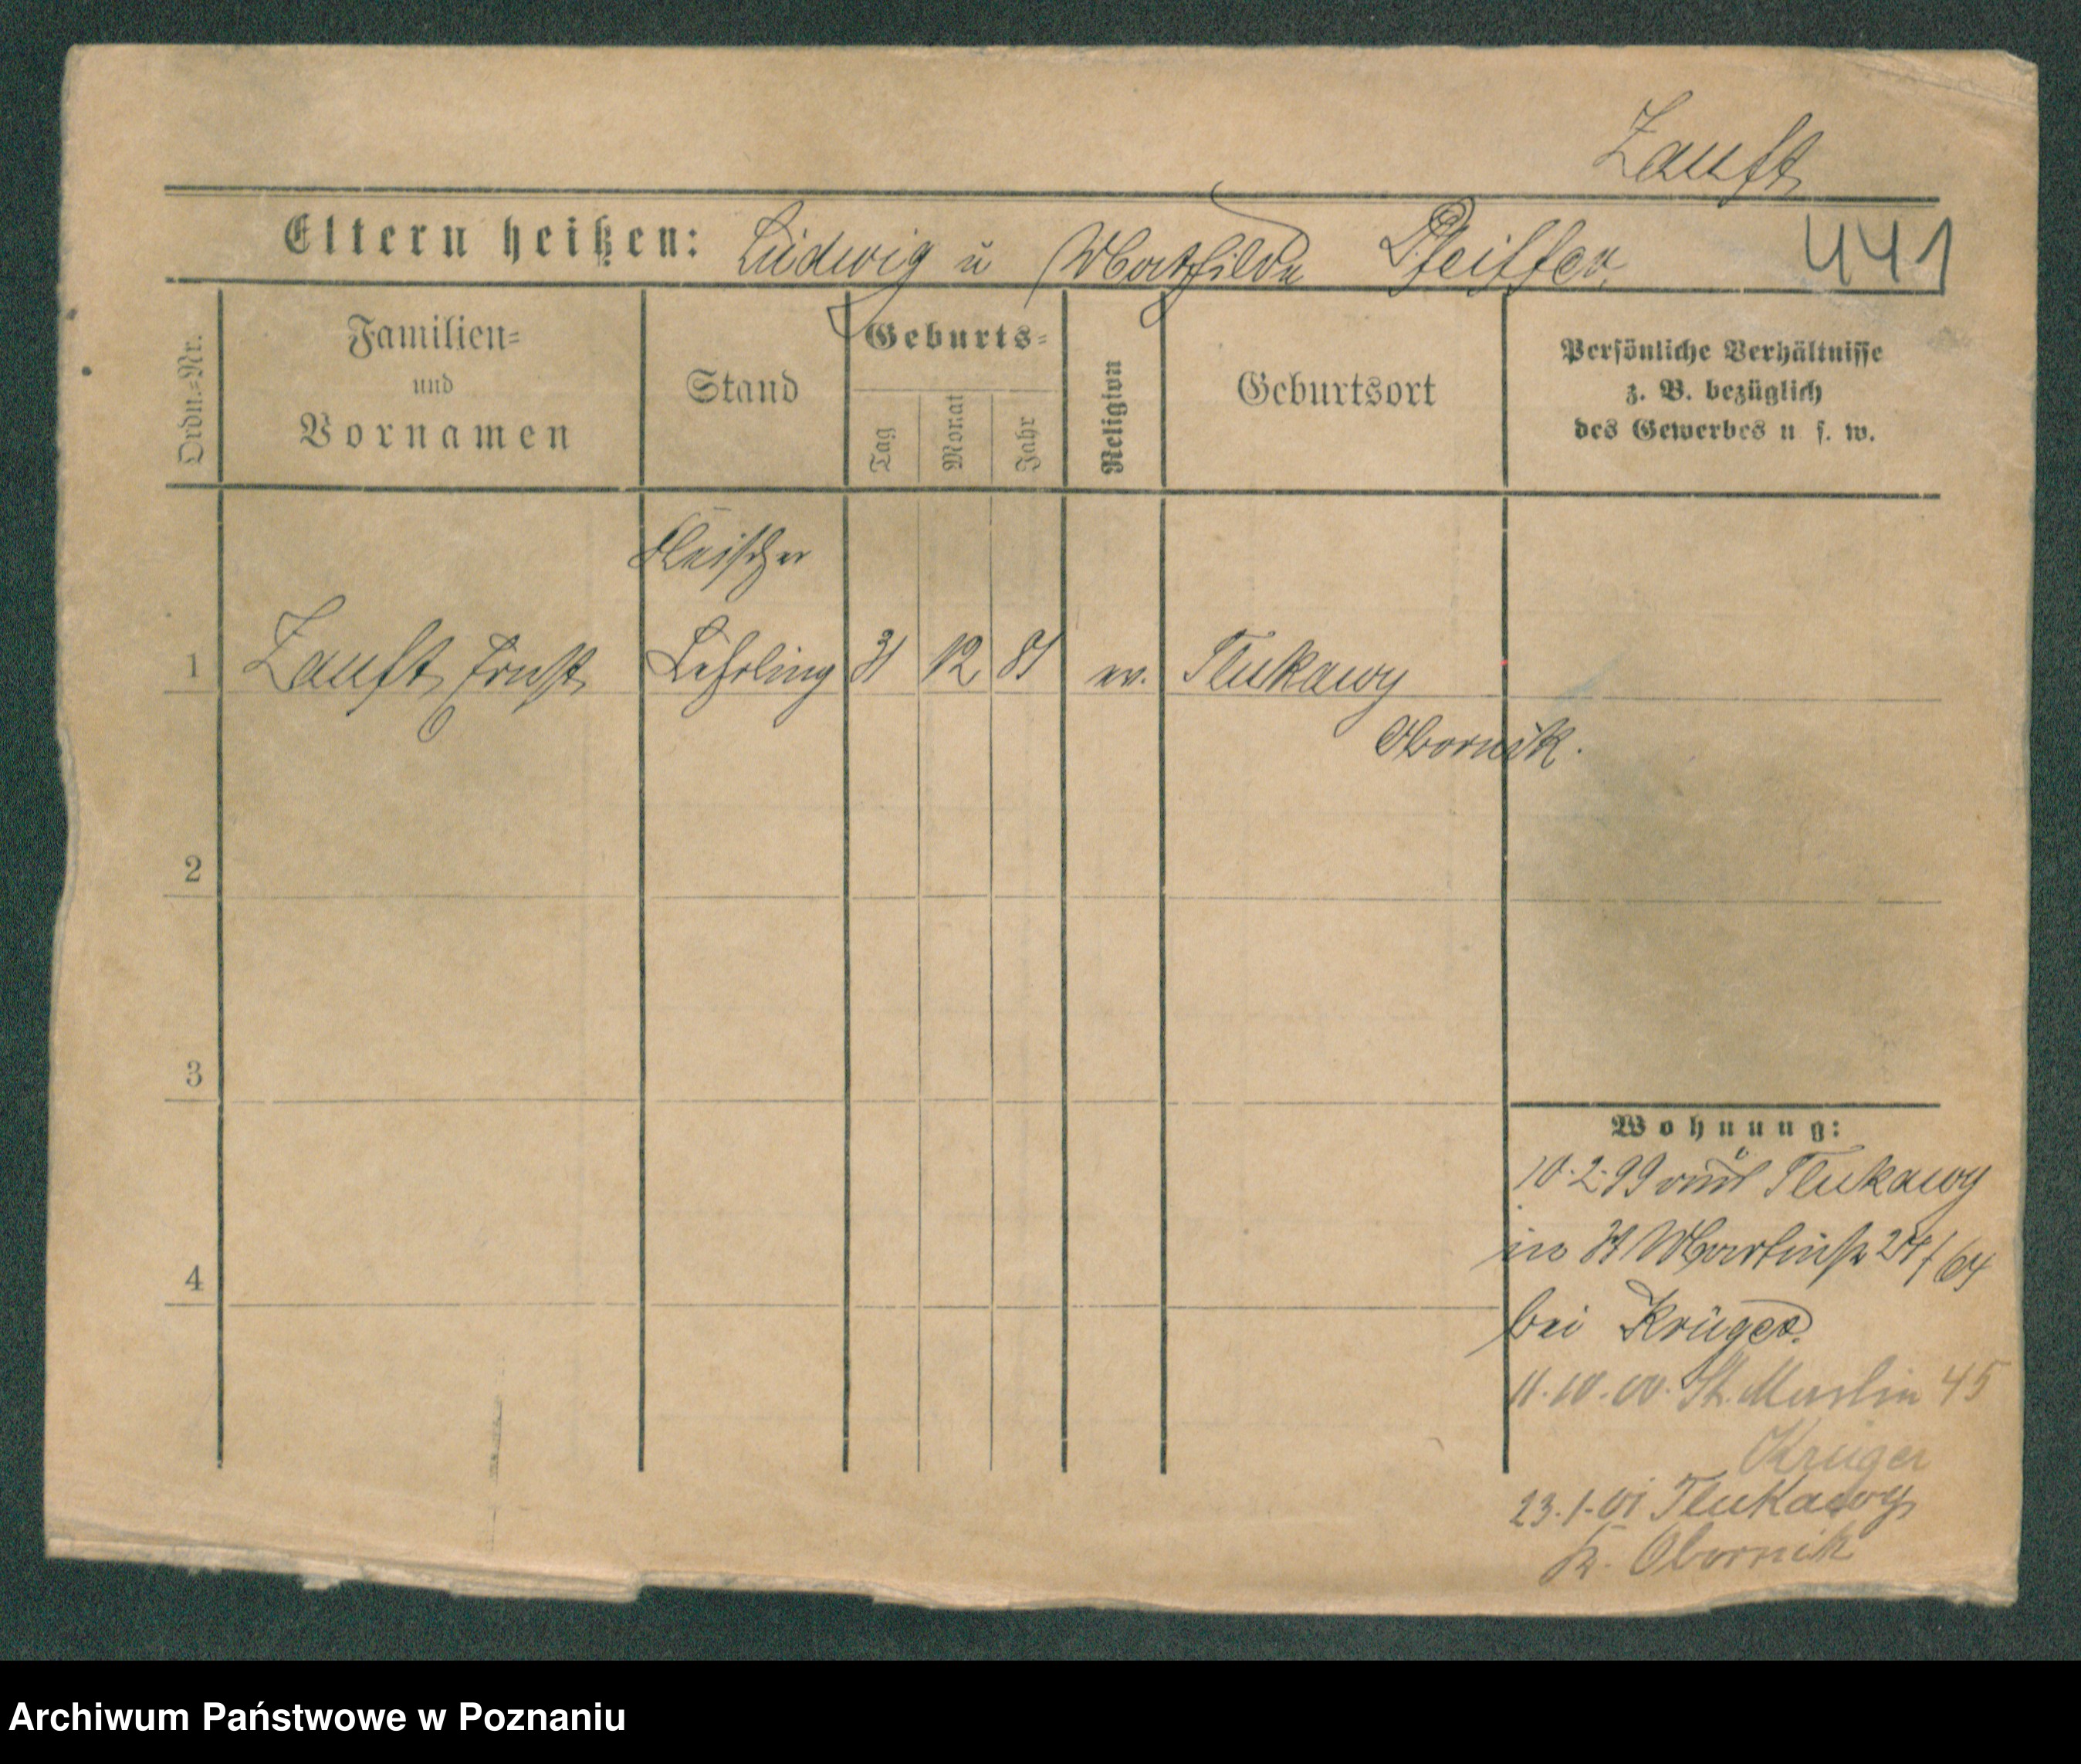 Zauft
Eltern heißen: Ludwig u Mathilde Pfeiffer
441
Ordn.=Nr.
Familien=
und
Vornamen
Stand
Geburts=
Tag
Monat
Jahr
Religion
Geburtsort
Persönliche Verhältnisse
z. B. bezüglich
des Gewerbes u s. w.
Fleischer
1 Zauft, Ernst Lehrling 31 12 81 ev. Tlukawy
Obornik.
2
3
4
Wohnung:
10.2.99 aus Tlukawy
in St Martinstr
bei Krüger.
11.10.00. St. Martin 45
Krüger
23.1.01 Tlukawy
Kr. Obornik
Archiwum Państwowe w Poznaniu